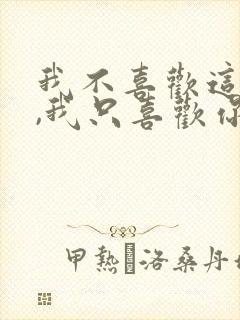 我不喜歡這
,我只喜歡你
甲熱洛桑丹